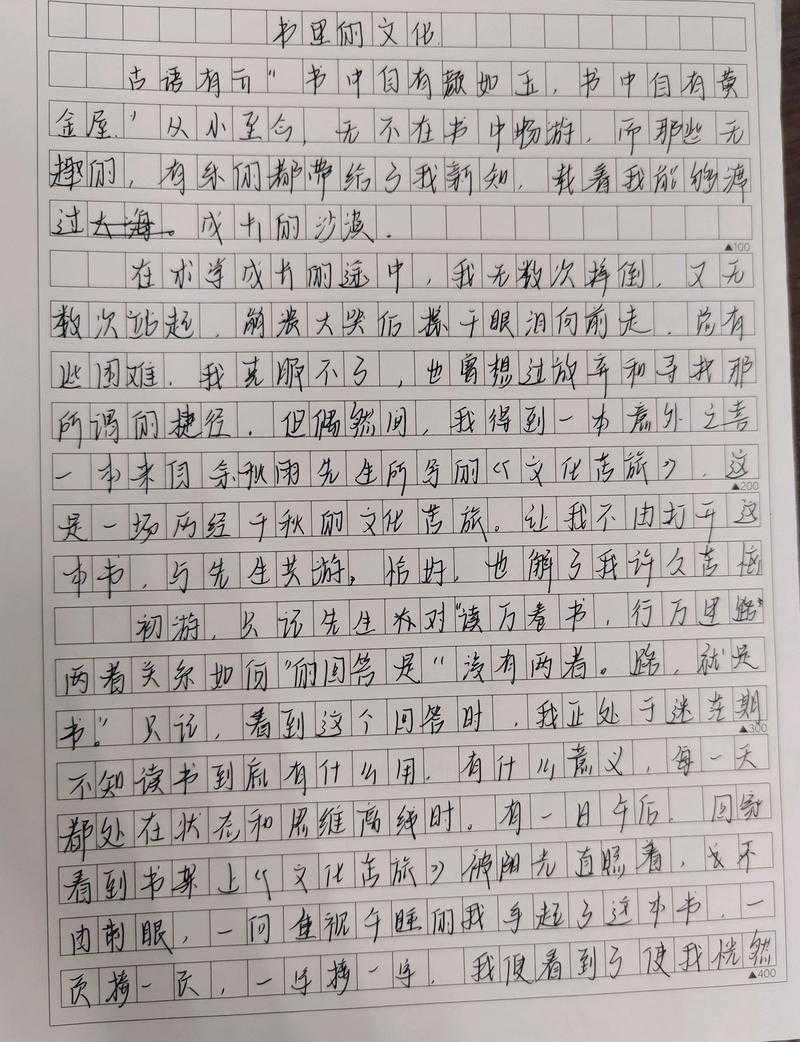 书里的文化
古语有云"书中自有颜如玉，书中自有黄
金屋."从小至今，无不在书中畅游，而那些无
趣的，有系的都带给了我新知，载着我能够渡
过大海。成长的沙漠.
▲100
在求学成长的途中，我无数次摔倒，又无
数次站起，崩溃大哭后擦干眼泪向前走，总有
些困难，我克服不了，也曾想过放弃和寻找那
所谓的捷径，但偶然间，我得到一本意外之喜
一本来自余秋雨先生所写的《文化苦旅》，这
▲200
是一场历经千秋的文化苦旅。让我不由打开这
本书，与先生共游，恰好，也解了我许久苦恼
初游，只记先生在对"读万卷书，行万里路"
两者关系如何"的回答是"没有两者。路，就是
书。"只记，看到这个回答时，我正处于迷茫期
▲300
不知读书到底有什么用，有什么意义，每一天
都处在状态和思维离线时。有一日午后，回家
看到书架上《文化苦旅》被阳光直照着，不
由刺眼，一向重视午睡的我拿起了这本书，一
页接一页，一字接一字，我便看到了使我恍然
▲400